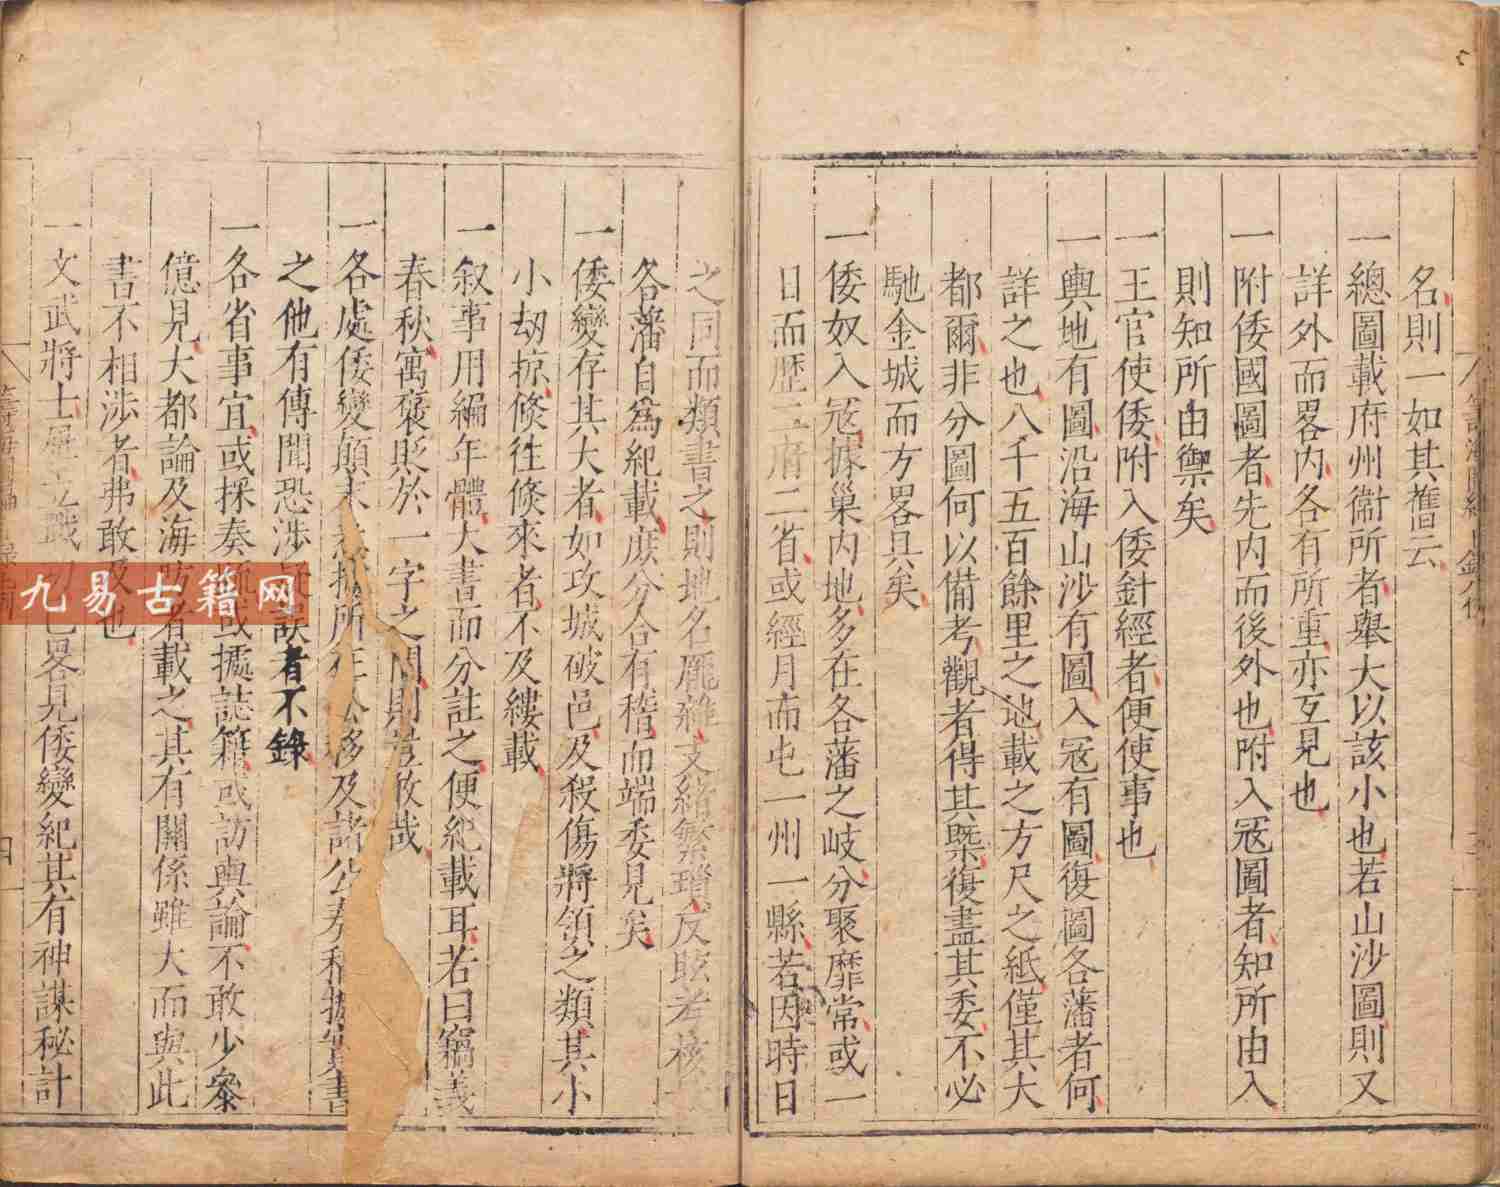 名則一如其舊云
一總圖載府州衞所者舉大以該小也若山沙圖則又
詳外而畧內各有所重亦互見也
一附倭國圖者先內而後外也附入冦圖者知所由入
則知所由禦矣
一王官使倭附入倭針經者便使事也
一輿地有圖沿海山沙有圖入冦有圖復圖各藩者何
詳之也八千五百餘里之地載之方尺之紙僅其大
都爾非分圖何以備考觀者得其槩復盡其委不必
馳金城而方畧具矣
一倭奴入冦據巢內地多在各藩之岐分聚靡常或一
日而歷二府二省或經月而屯一州一縣若因時日
之同而類書之則地名厖雜文緒繁瑣反眩考核
各藩自爲紀載庶分合有稽而端委見矣
一倭變存其大者如攻城破邑及殺傷將領之類其小
小刼掠倐徃倐來者不及縷載
一叙事用編年體大書而分註之便紀載耳若曰竊義
春秋寓褒貶於一字之間則豈敢哉
一各處倭變顛末 所 移及諸公奏 據實書
之他有傳聞恐涉 誤者不錄
一各省事宜或採奏疏或據誌籍或訪輿論不敢少叅
億見大都論及海防者載之其有關係雖大而與此
書不相涉者弗敢及也
一文武將士 畧見倭變紀其有神謀秘計
九易古籍网